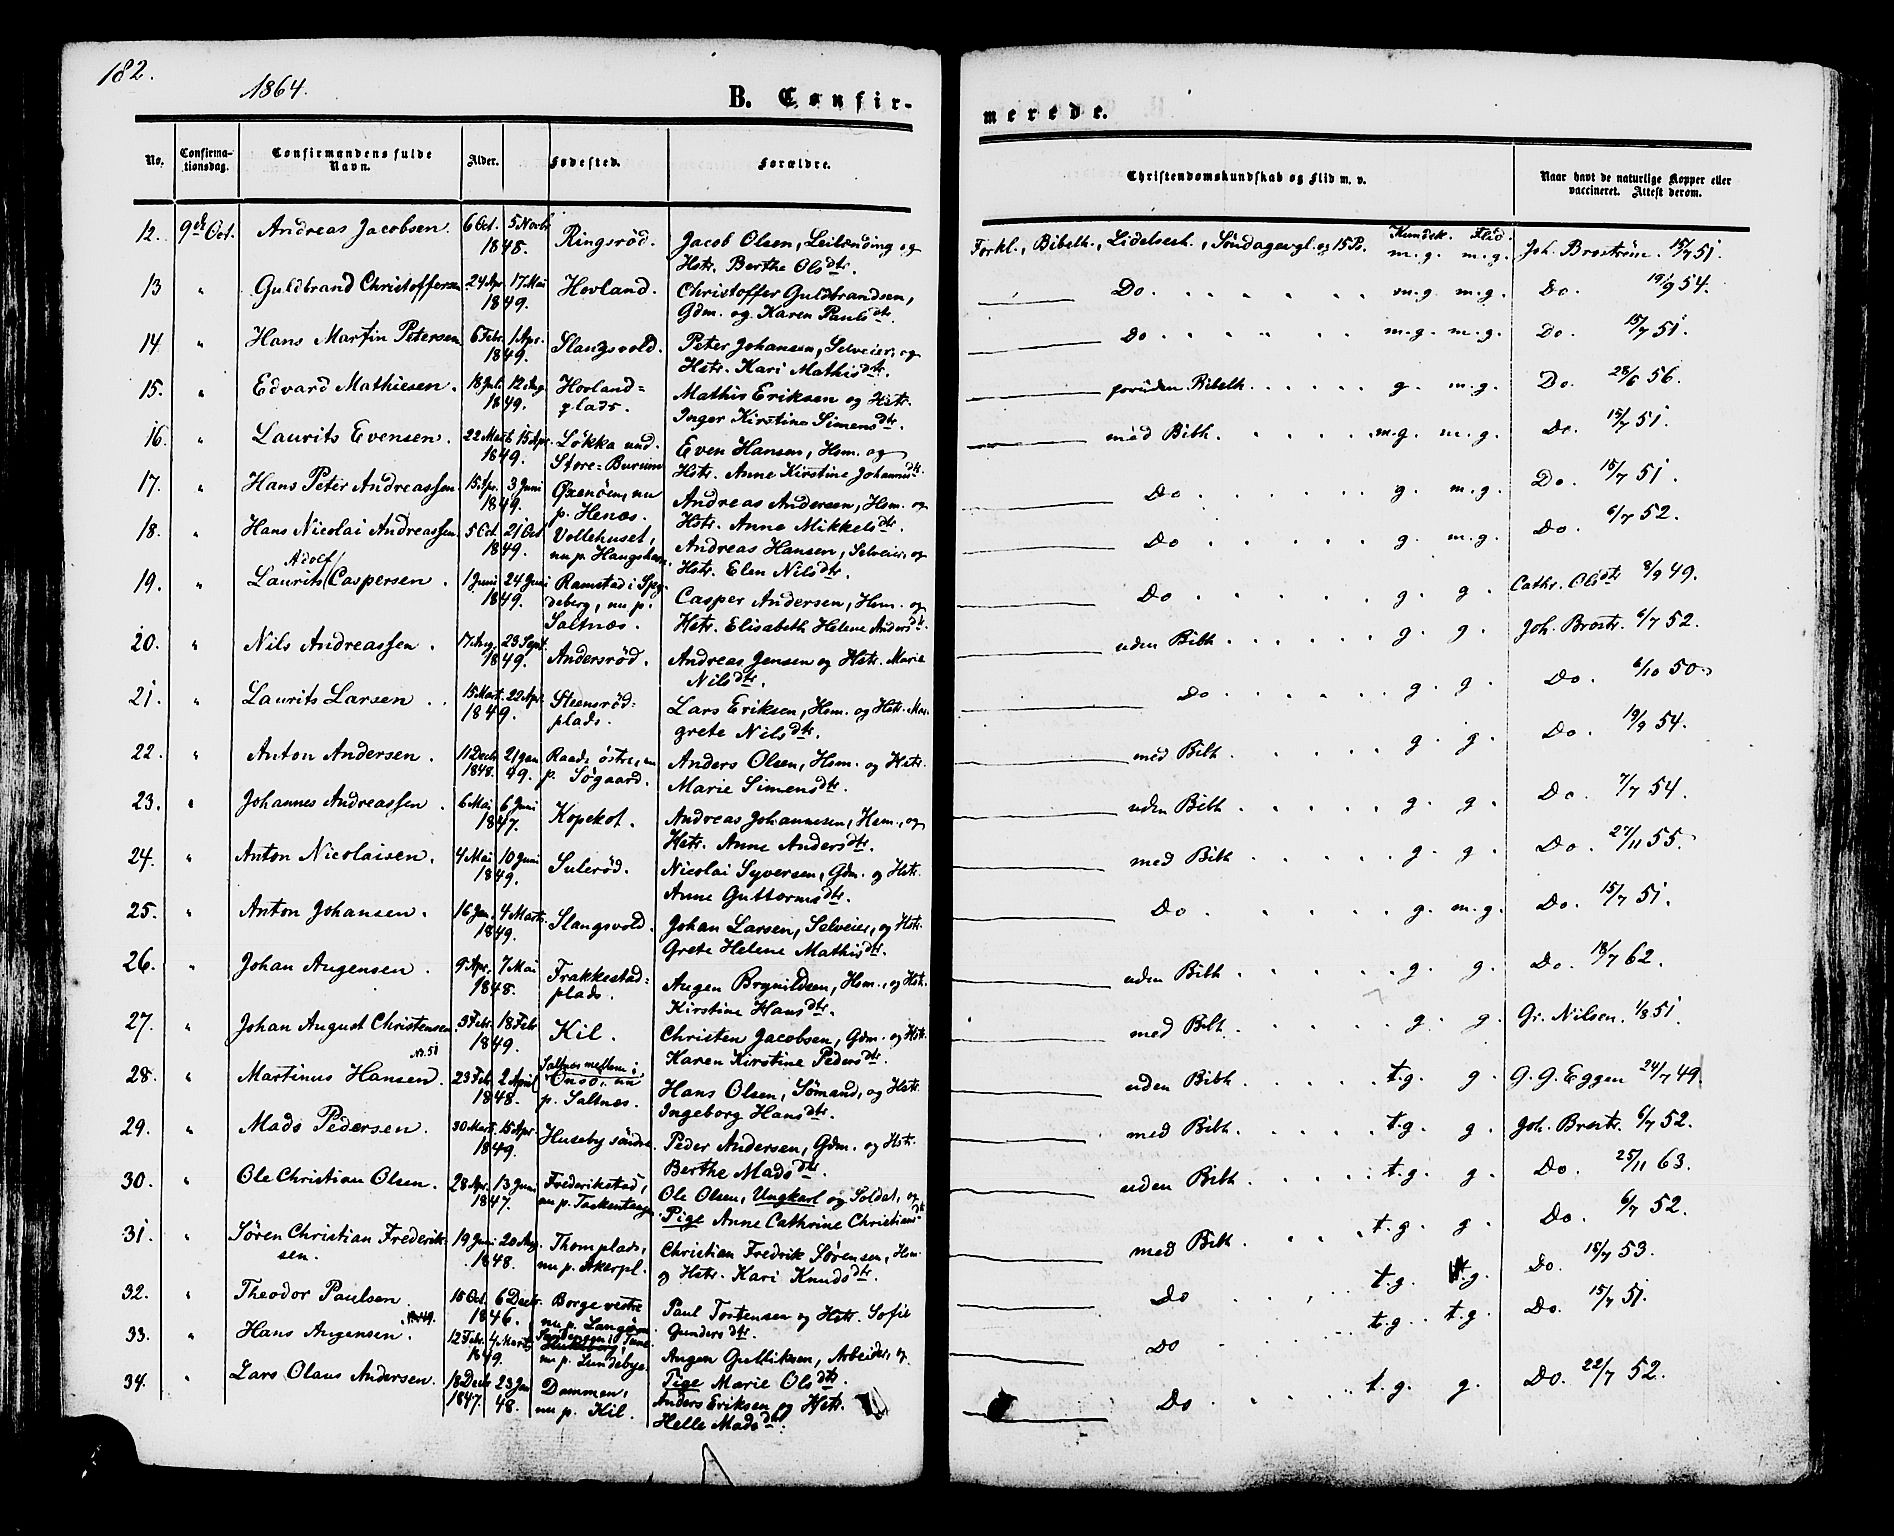 182.
1864.
B. Confir-
merede.
No.
Confirma-
tionsdag.
Confirmandens fulde
Navn.
Alder.
Fødested.
Forældre.
Christendomskundskab og Flid m. v.
Naar havt de naturlige Kopper eller
vaccineret. Attest derom.
12. 9de Oct. Andreas Jacobsen. 6 Oct. 5 Novbr 1848. Ringsrød. Jacob Olsen, Leilænding og
Hstr. Berthe Olsdtr.
Forkl., Bibelh., Lidelsesh., Søndagsevgl. og 15 Ps. Kundsk. m.g. Flid. m.g. Joh. Brostrøm. 15/7 51.
13 " Guldbrand Christoffersen 24 Apr. 17 Mai 1849. Hovland. Christoffer Guldbrandsen,
Gdm. og Karen Paulsdtr.
Do. m.g. m.g. Do. 19/9 54.
14 " Hans Martin Petersen 6 Febr. 1 Apr. 1849. Slangsvold. Peter Johansen, Selveier, og
Hstr. Kari Mathisdtr.
Do m.g. m.g. Do. 15/7 51.
15. " Edvard Mathiesen. 18 Juli 12 Aug 1849. Hovland=
plads. Mathis Eriksen og Hstr.
Inger Kirstine Simensdtr.
uden Bibelh. g. m.g. Do. 28/6 56.
16. " Laurits Evensen. 22 Mart 15 Apr. 1849. Løkka und.
Store=Burum Even Hansen, Hsm. og
Hstr. Anne Kirstine Johannesdtr.
med Bibh. m.g. m.g. Do. 15/7 51.
17. " Hans Peter Andreassen 15 Apr. 3 Juni 1849. Oxenøen, nu
p. Henæs. Andreas Andersen, Hsm. og
Hstr. Anne Mikkelsdtr.
Do g. m.g. Do. 15/7 51.
18. " Hans Nicolai Andreassen 5 Oct. 21 Oct 1849. Vollehuset,
nu p. Andreas Hansen, Selveier, og
Hstr. Elen Nilsdtr.
Do g. m.g. Do. 6/7 52.
19. " Laurits Adolf Caspersen. 1 Juni 24 Juni 1849. Ramstad i Spy-
deberg, nu p.
Saltnæs. Casper Andersen, Hsm. og
Hstr. Elisabeth Helene Andersdtr.
Do g. g. Cathr. Olsdtr 8/9 49.
20. " Nils Andreassen. 17 Aug. 23 Sept. 1849. Andersrød. Andreas Jensen og Hstr. Marie
Nilsdtr.
uden Bibh g. g. Joh. Brostr. 6/7 52.
21. " Laurits Larsen. 15 Mart. 22 Apr. 1849. Steensrød=
plads. Lars Eriksen, Hsm. og Hstr. Mar-
grete Nilsdtr.
Do g. g. Do. 6/10 50.
22. " Anton Andersen. 11 Decbr 1848. 21 Jan 49. Raade østre, nu
p. Søgaard. Anders Olsen, Hsm. og Hstr.
Marie Simensdtr.
med Bibh. g. g. Do. 19/9 54.
23. " Johannes Andreassen. 6 Mai 6 Juni 1847. Kopekot. Andreas Johannesen, Hsm., og
Hstr. Anne Andersdtr.
uden Bibh. g. g. Do. 7/7 54.
24. " Anton Nicolaisen. 4 Mai 10 Juni 1849. Sulerød. Nicolai Syversen, Gdm. og Hstr.
Anne Guttormsdtr.
med Bibh g. g. Do. 27/11 55.
25. " Anton Johansen. 16 Jan. 4 Marts 1849. Slangsvold. Johan Larsen, Selveier, og Hstr.
Grete Helene Mathisdtr.
Do g. m.g. Do. 15/7 51.
26. " Johan Augensen. 9 Apr. 7 Mai 1848. Frakkestad=
plads. Augen Brynildsen, Hsm., og Hstr.
Kirstine Hansdtr.
uden Bibh g. g. Do. 18/7 62.
27. " Johan August Christensen 3 Febr. 18 Febr 1849. Kil. Christen Jacobsen, Gdm. og Hstr.
Karen Kirstine Pedersdtr.
med Bibh. g. g. Gr. Nilsen. 1/8 51.
28. " Martinus Hansen. 23 Feb. 2 April 1848. Saltnes mellem i
Onsø, nu
p. Saltnæs. Hans Olsen, Sømand, og Hstr.
Ingeborg Hansdtr.
uden Bibh t.g. g. G. G. Eggen 24/7 49.
29. " Mads Pedersen. 30 Mart. 15 Apr. 1849. Huseby søndre. Peder Andersen, Gdm. og Hstr.
Berthe Madsdtr.
med Bibh. t.g. g. Joh. Brostr. 6/7 52.
30. " Ole Christian Olsen. 28 Apr. 13 Juni 1847. Frederikstad,
nu p. Ole Olsen, Ungkarl og Soldat, og
Pige Anne Cathrine Christiansdtr
uden Bibh t.g. g. Do. 25/11 63.
31. " Søren Christian Frederik-
sen. 19 Juni 20 Aug. 1848. Thomplads,
nu p. Akerpl. Christian Fredrik Sørensen, Hsm.
og Hstr. Kari Knudsdtr.
med Bibh. t.g. g. Do. 6/7 52.
32. " Theodor Paulsen 15 Oct. 6 Decbr. 1846. Borge vestre
nu p. Paul Torstensen og Hstr. Sofie
Gundersdtr.
Do t.g. t.g. Do. 15/7 53.
33. " Hans Augensen. 12 Febr. 4 Marts 1849.
nu p. Lundebye. Augen Gulliksen, Arbeider, og
Pige Marie Olsdtr.
Do t.g. t.g. Do. 15/7 51.
34. " Lars Olaus Andersen. 18 Decbr 1847. 23 Jan 48. Dammen,
nu p. Kil. Anders Eriksen og Hstr.
Helle Madsdtr.
Do t.g. g. Do. 22/7 52.